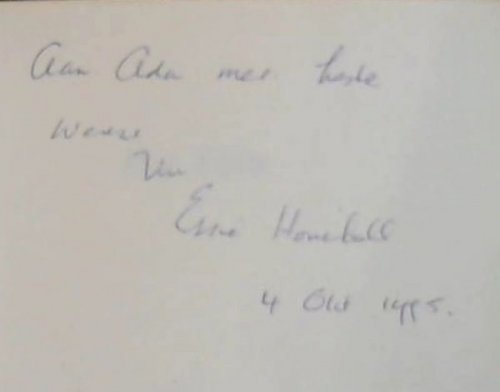 Aan Ada met beste
wense
Van
Essie Honiball
4 Okt 1995.